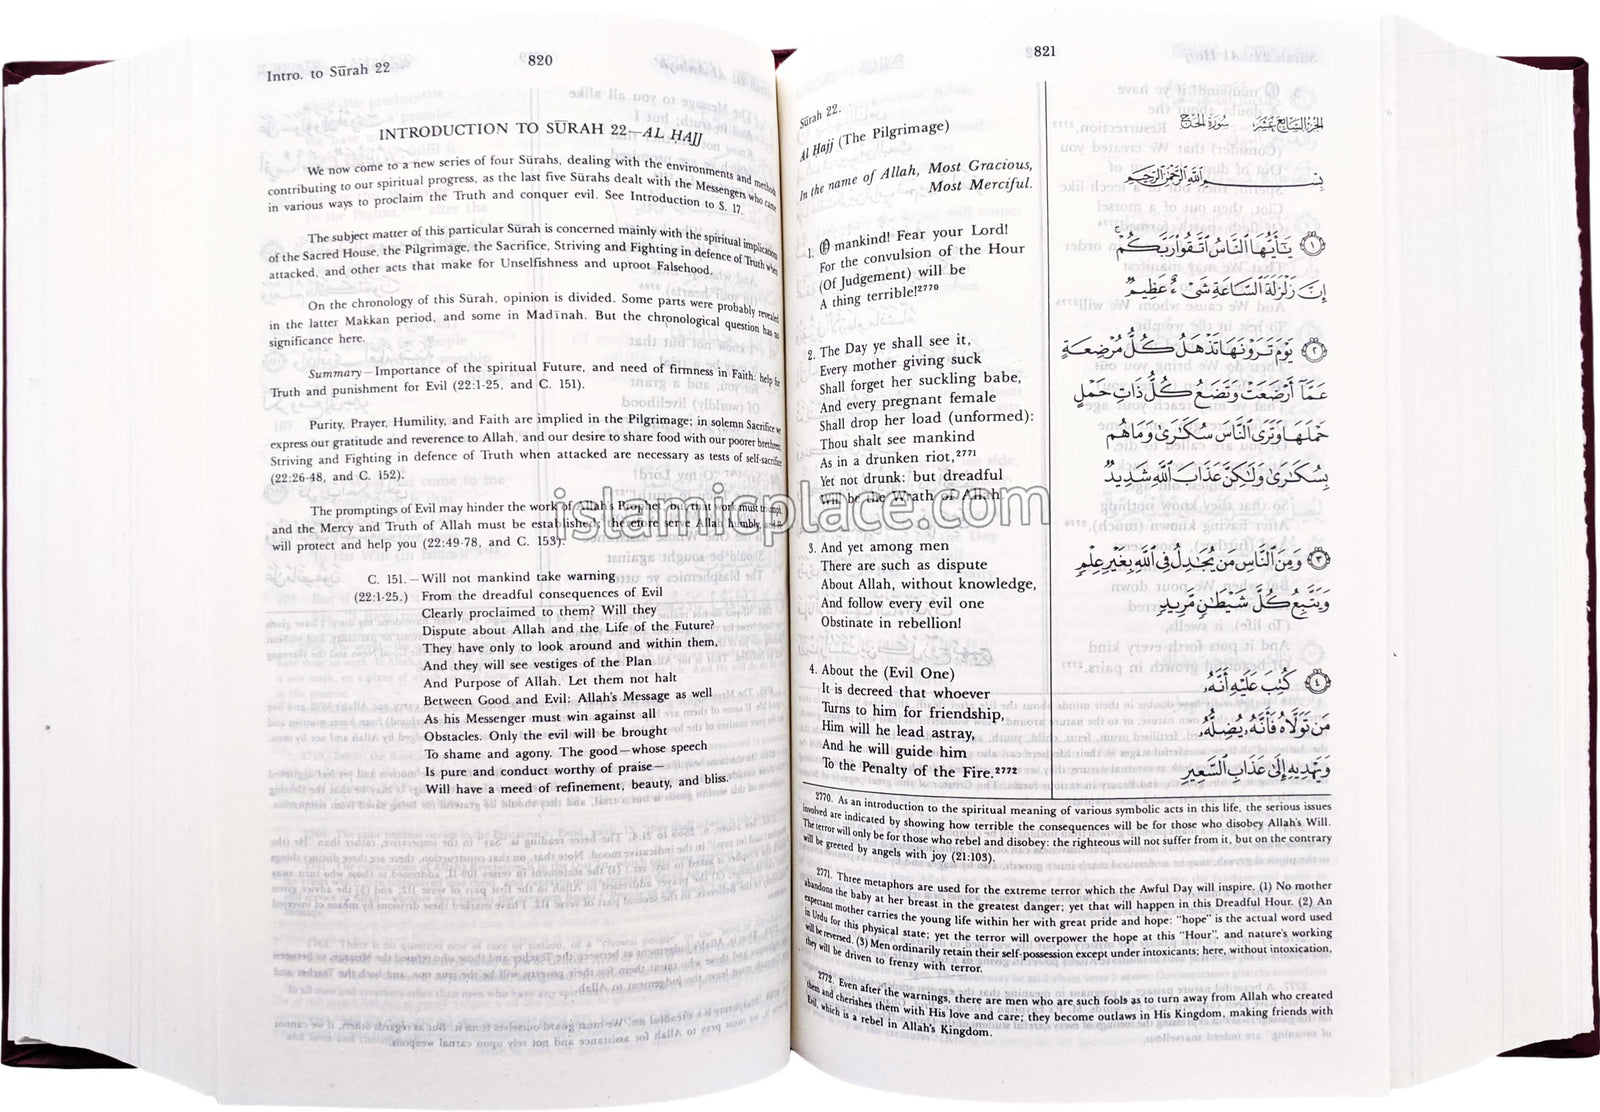 Intro. to Sūrah 22
820
INTRODUCTION TO SŪRAH 22—AL ḤAJJ
We now come to a new series of four Sūrahs, dealing with the environments and methods
contributing to our spiritual progress, as the last five Sūrahs dealt with the Messengers who came
in various ways to proclaim the Truth and conquer evil. See Introduction to S. 17.
The subject matter of this particular Sūrah is concerned mainly with the spiritual implications
of the Sacred House, the Pilgrimage, the Sacrifice, Striving and Fighting in defence of Truth when
attacked, and other acts that make for Unselfishness and uproot Falsehood.
On the chronology of this Sūrah, opinion is divided. Some parts were probably revealed
in the latter Makkan period, and some in Madīnah. But the chronological question has no
significance here.
Summary—Importance of the spiritual Future, and need of firmness in Faith: help for
Truth and punishment for Evil (22:1-25, and C. 151).
Purity, Prayer, Humility, and Faith are implied in the Pilgrimage; in solemn Sacrifice we
express our gratitude and reverence to Allah, and our desire to share food with our poorer brethren.
Striving and Fighting in defence of Truth when attacked are necessary as tests of self-sacrifice
(22:26-48, and C. 152).
The promptings of Evil may hinder the work of Allah's Prophet, but that work must triumph,
and the Mercy and Truth of Allah must be established; therefore serve Allah humbly, and He
will protect and help you (22:49-78, and C. 153).
C. 151.—Will not mankind take warning
(22:1-25.) From the dreadful consequences of Evil
Clearly proclaimed to them? Will they
Dispute about Allah and the Life of the Future?
They have only to look around and within them,
And they will see vestiges of the Plan
And Purpose of Allah. Let them not halt
Between Good and Evil: Allah's Message as well
As his Messenger must win against all
Obstacles. Only the evil will be brought
To shame and agony. The good—whose speech
Is pure and conduct worthy of praise—
Will have a meed of refinement, beauty, and bliss.
821
Sūrah 22.
Al Ḥajj (The Pilgrimage)
In the name of Allah, Most Gracious,
Most Merciful.
1. O mankind! Fear your Lord!
For the convulsion of the Hour
(Of Judgement) will be
A thing terrible!2770
2. The Day ye shall see it,
Every mother giving suck
Shall forget her suckling babe,
And every pregnant female
Shall drop her load (unformed):
Thou shalt see mankind
As in a drunken riot,2771
Yet not drunk: but dreadful
Will be the Wrath of Allah
3. And yet among men
There are such as dispute
About Allah, without knowledge,
And follow every evil one
Obstinate in rebellion!
4. About the (Evil One)
It is decreed that whoever
Turns to him for friendship,
Him will he lead astray,
And he will guide him
To the Penalty of the Fire.2772
الجزء السابع عشر سورة الحج
بِسْمِ اللَّهِ الرَّحْمَٰنِ الرَّحِيمِ
١ يَٰٓأَيُّهَا النَّاسُ اتَّقُوا۟ رَبَّكُمْ ۚ
إِنَّ زَلْزَلَةَ السَّاعَةِ شَىْءٌ عَظِيمٌ
٢ يَوْمَ تَرَوْنَهَا تَذْهَلُ كُلُّ مُرْضِعَةٍ
عَمَّآ أَرْضَعَتْ وَتَضَعُ كُلُّ ذَاتِ حَمْلٍ
حَمْلَهَا وَتَرَى النَّاسَ سُكَٰرَىٰ وَمَا هُم
بِسُكَٰرَىٰ وَلَٰكِنَّ عَذَابَ اللَّهِ شَدِيدٌ
٣ وَمِنَ النَّاسِ مَن يُجَٰدِلُ فِى اللَّهِ بِغَيْرِ عِلْمٍ
وَيَتَّبِعُ كُلَّ شَيْطَٰنٍ مَّرِيدٍ
٤ كُتِبَ عَلَيْهِ أَنَّهُۥ
مَن تَوَلَّاهُ فَأَنَّهُۥ يُضِلُّهُۥ
وَيَهْدِيهِ إِلَىٰ عَذَابِ السَّعِيرِ
2770. As an introduction to the spiritual meaning of various symbolic acts in this life, the serious issues
involved are indicated by showing how terrible the consequences will be for those who disobey Allah's Will.
The terror will only be for those who rebel and disobey: the righteous will not suffer from it, but on the contrary
will be greeted by angels with joy (21:103).
2771. Three metaphors are used for the extreme terror which the Awful Day will inspire. (1) No mother
abandons the baby at her breast in the greatest danger; yet that will happen in this Dreadful Hour. (2) An
expectant mother carries the young life within her with great pride and hope: "hope" is the actual word used
in Urdu for this physical state; yet the terror will overpower the hope at this "Hour", and nature's working
will be reversed. (3) Men ordinarily retain their self-possession except under intoxicants; here, without intoxication,
they will be driven to frenzy with terror.
2772. Even after the warnings, there are men who are such fools as to turn away from Allah who created
them and cherishes them with His love and care; they become outlaws in His Kingdom, making friends with
Evil, which is a rebel in Allah's Kingdom.
islamicplace.com